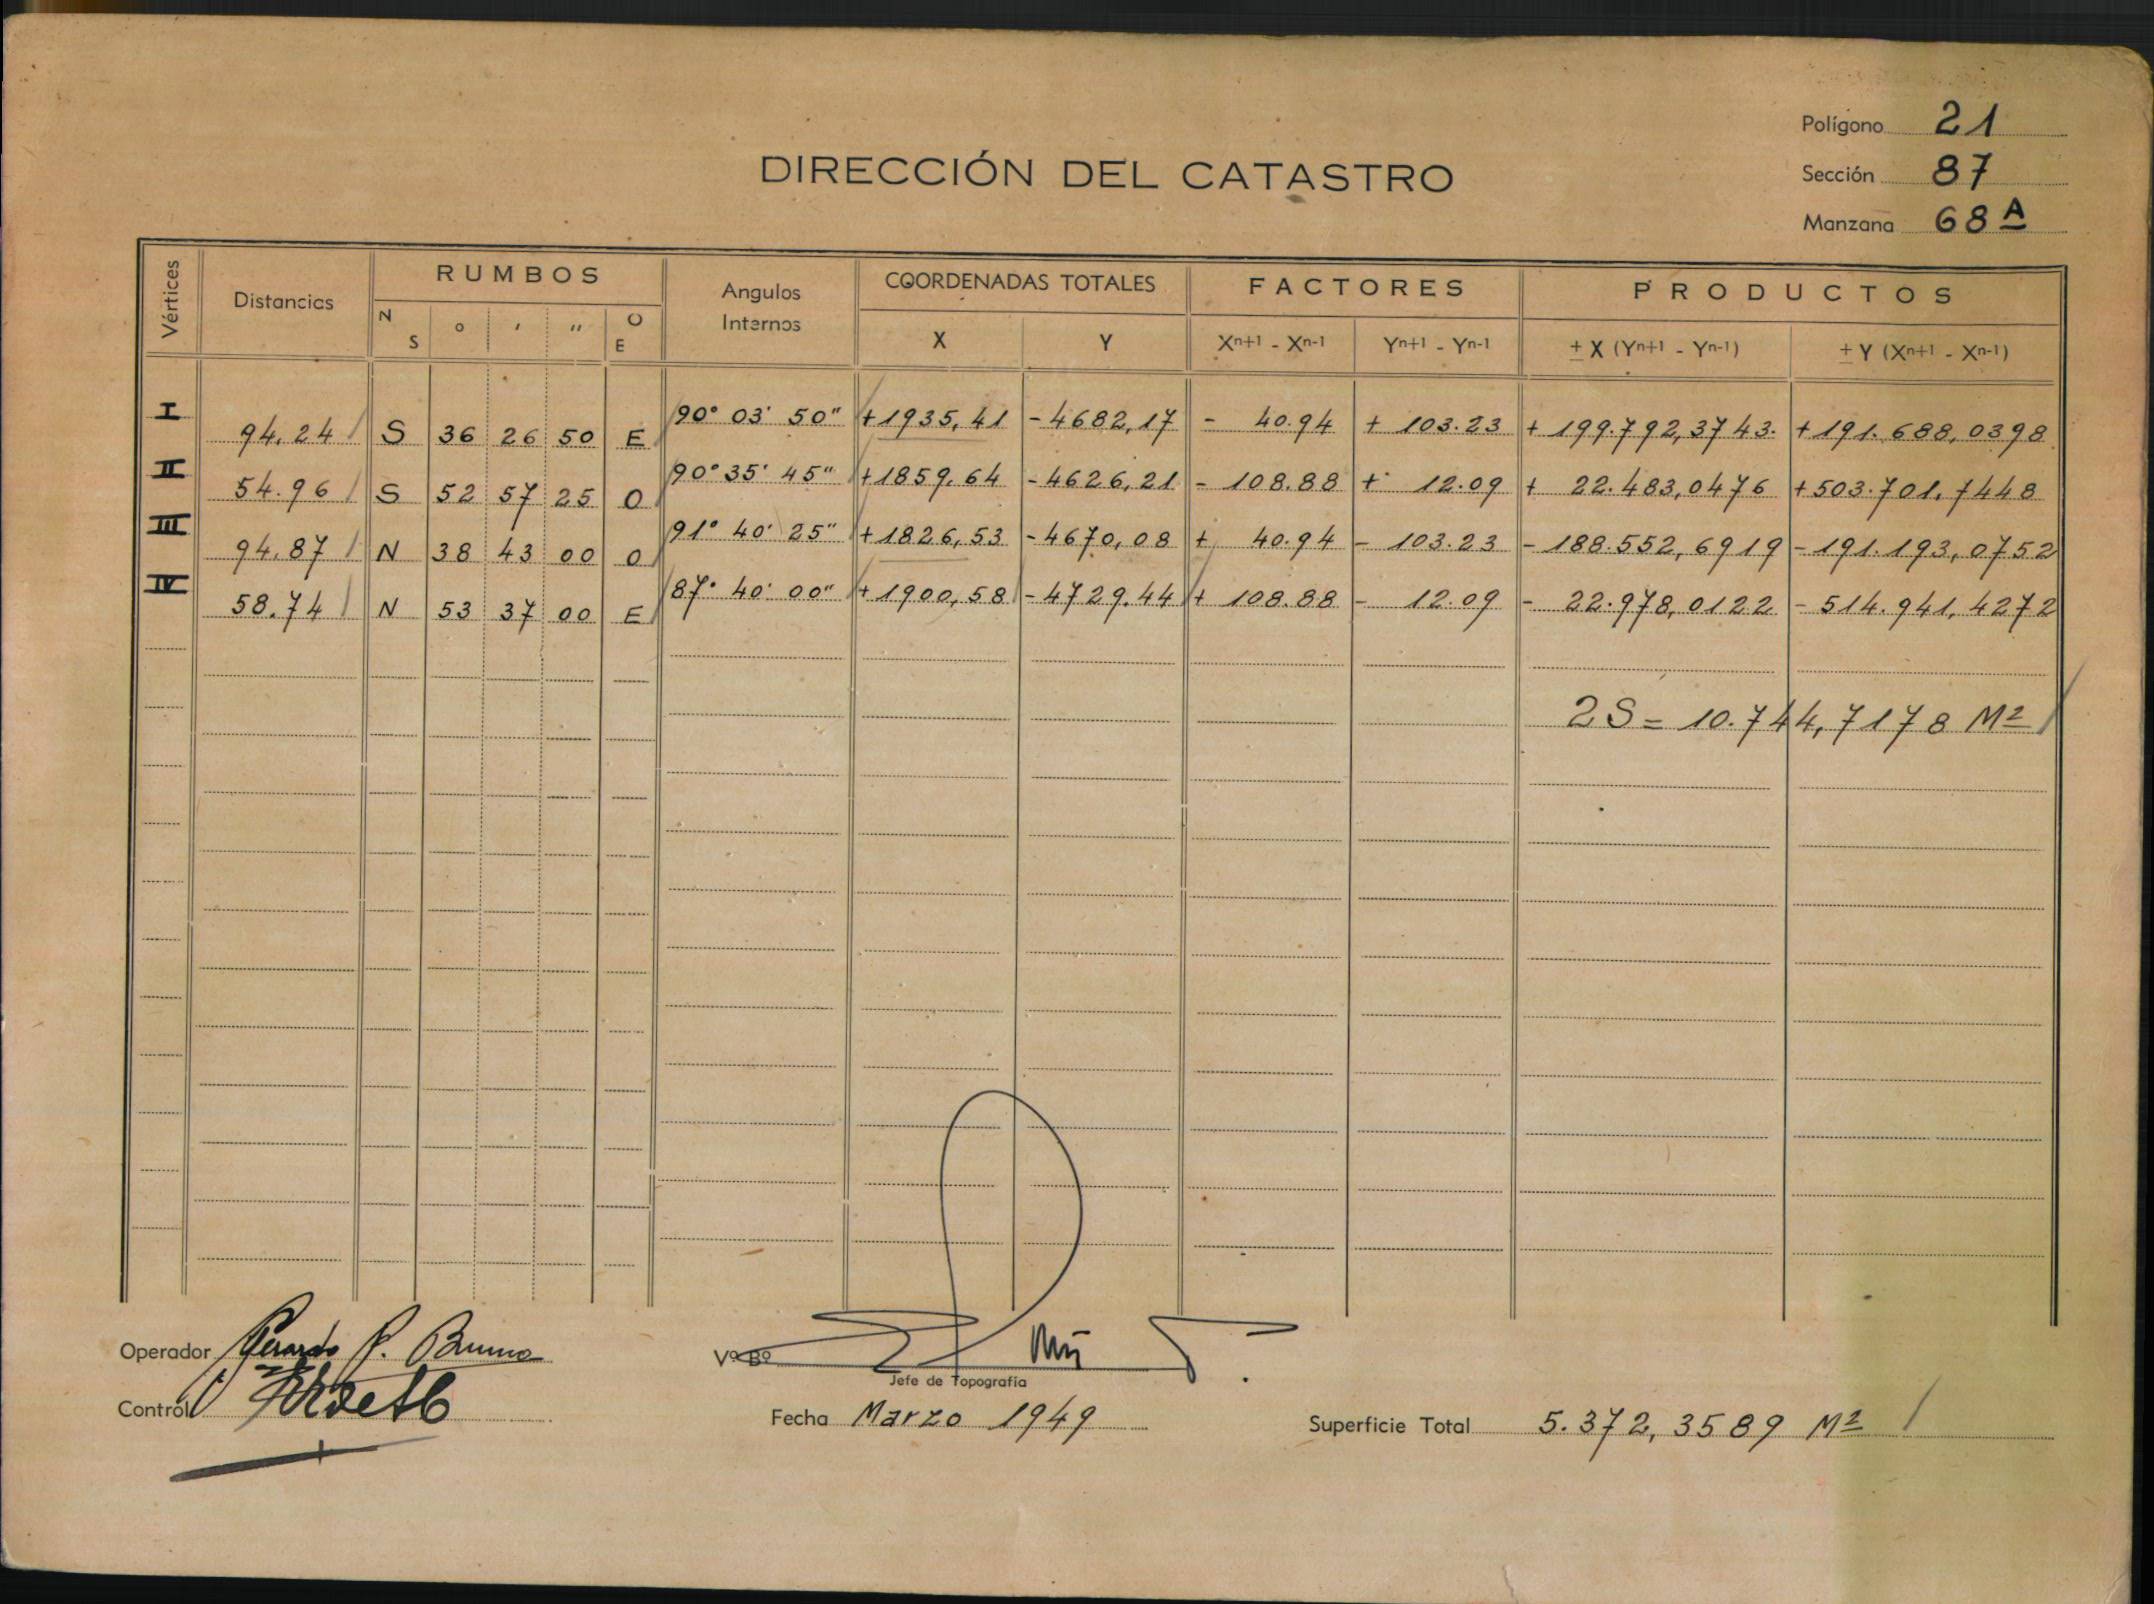 Polígono 21
DIRECCIÓN DEL CATASTRO
Sección 87
Manzana 68 A
Vértices Distancias RUMBOS Angulos Internos COORDENADAS TOTALES FACTORES PRODUCTOS
N S ° ' '' O E X Y Xn+1 - Xn-1 Yn+1 - Yn-1 ± X (Yn+1 - Yn-1) ± Y (Xn+1 - Xn-1)
I 94,24 S 36 26 50 E 90° 03' 50" +1935,41 -4682,17 - 40.94 + 103.23 + 199.792,3743. +191.688,0398
II 54.96 S 52 57 25 O 90° 35' 45" +1859,64 -4626,21 - 108.88 + 12.09 + 22.483,0476 +503.701,7448
III 94,87 N 38 43 00 O 91° 40' 25" +1826,53 -4670,08 + 40.94 - 103.23 - 188.552,6919 -191.193,0752
IV 58.74 N 53 37 00 E 87° 40' 00" +1900,58 -4729.44 + 108.88 - 12.09 - 22.978,0122 - 514.941,4272
2S = 10.744,7178 M2
Operador Gerardo P. Bruno
Vº Bº
Jefe de Topografía
Control
Fecha Marzo 1949
Superficie Total 5.372,3589 M2